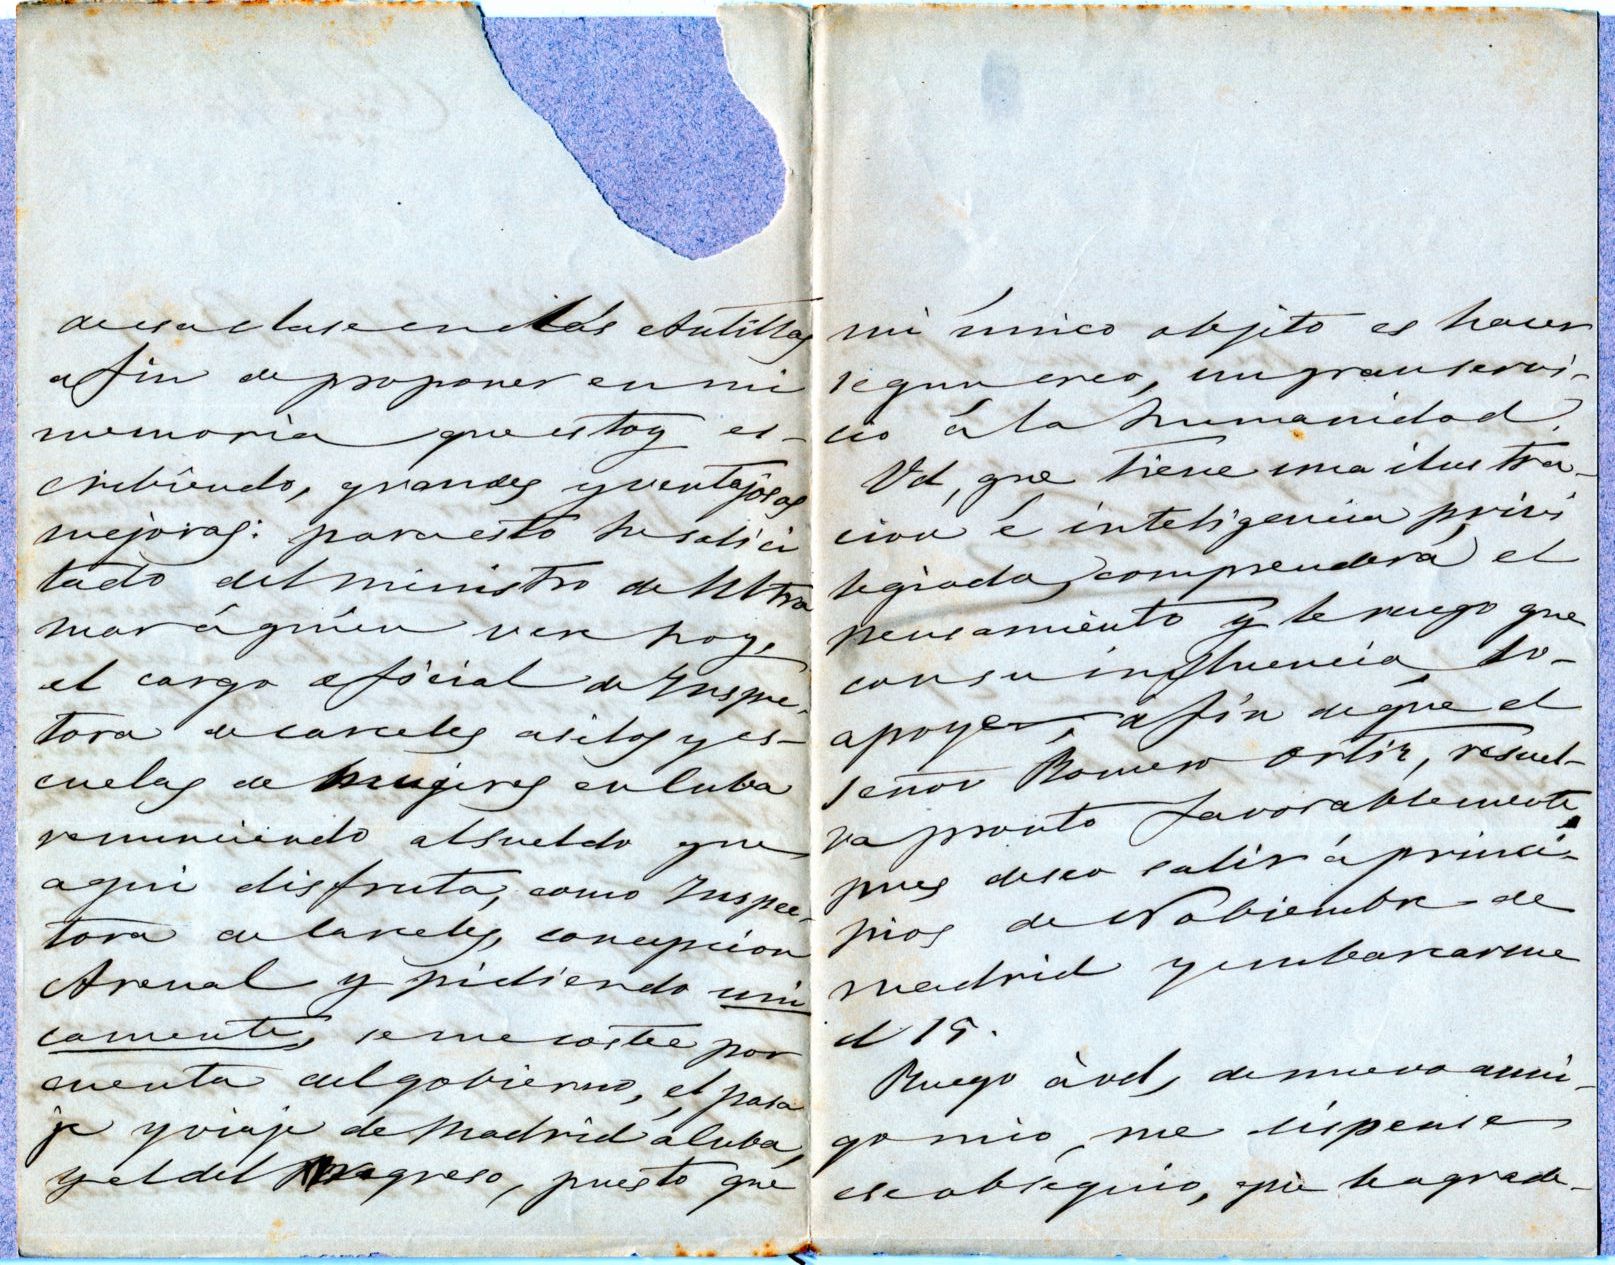 de esa clase en las Antillas
a fin de proponer en mi
memoria que estoy es-
cribiendo, grandes y ventajosas
mejoras: para esto he solici
tado del ministro de Ultra
mar á quien vere hoy,
el cargo oficial de Inspec-
tora de carceles asilos y es-
cuelas de mujeres en Cuba
renunciendo al sueldo que
aqui disfruta, como Inspec-
tora de Carceles, concepcion
Arenal y pidiendo uni
camente, se me costee por
cuenta del gobierno, el pasa
je y viaje de Madrid a Cuba,
y el del regreso, puesto que
mi único objeto es hacer
segun creo, un gran servi-
cio á la humanidad.
Vd, que tiene una ilustra-
cion é inteligencia privi
legiada, comprenderá el
pensamiento y le ruego que
con su influencia lo
apoye, a fin de que el
señor Romero Ortiz, resuel-
va pronto favorablemente,
pues deseo salir á princi-
pios de Nobiembre de
madrid y embarcarme
el 15.
Ruego à vd, de nuevo ami-
go mio, me dispense
ese obsequio, que le agrade-